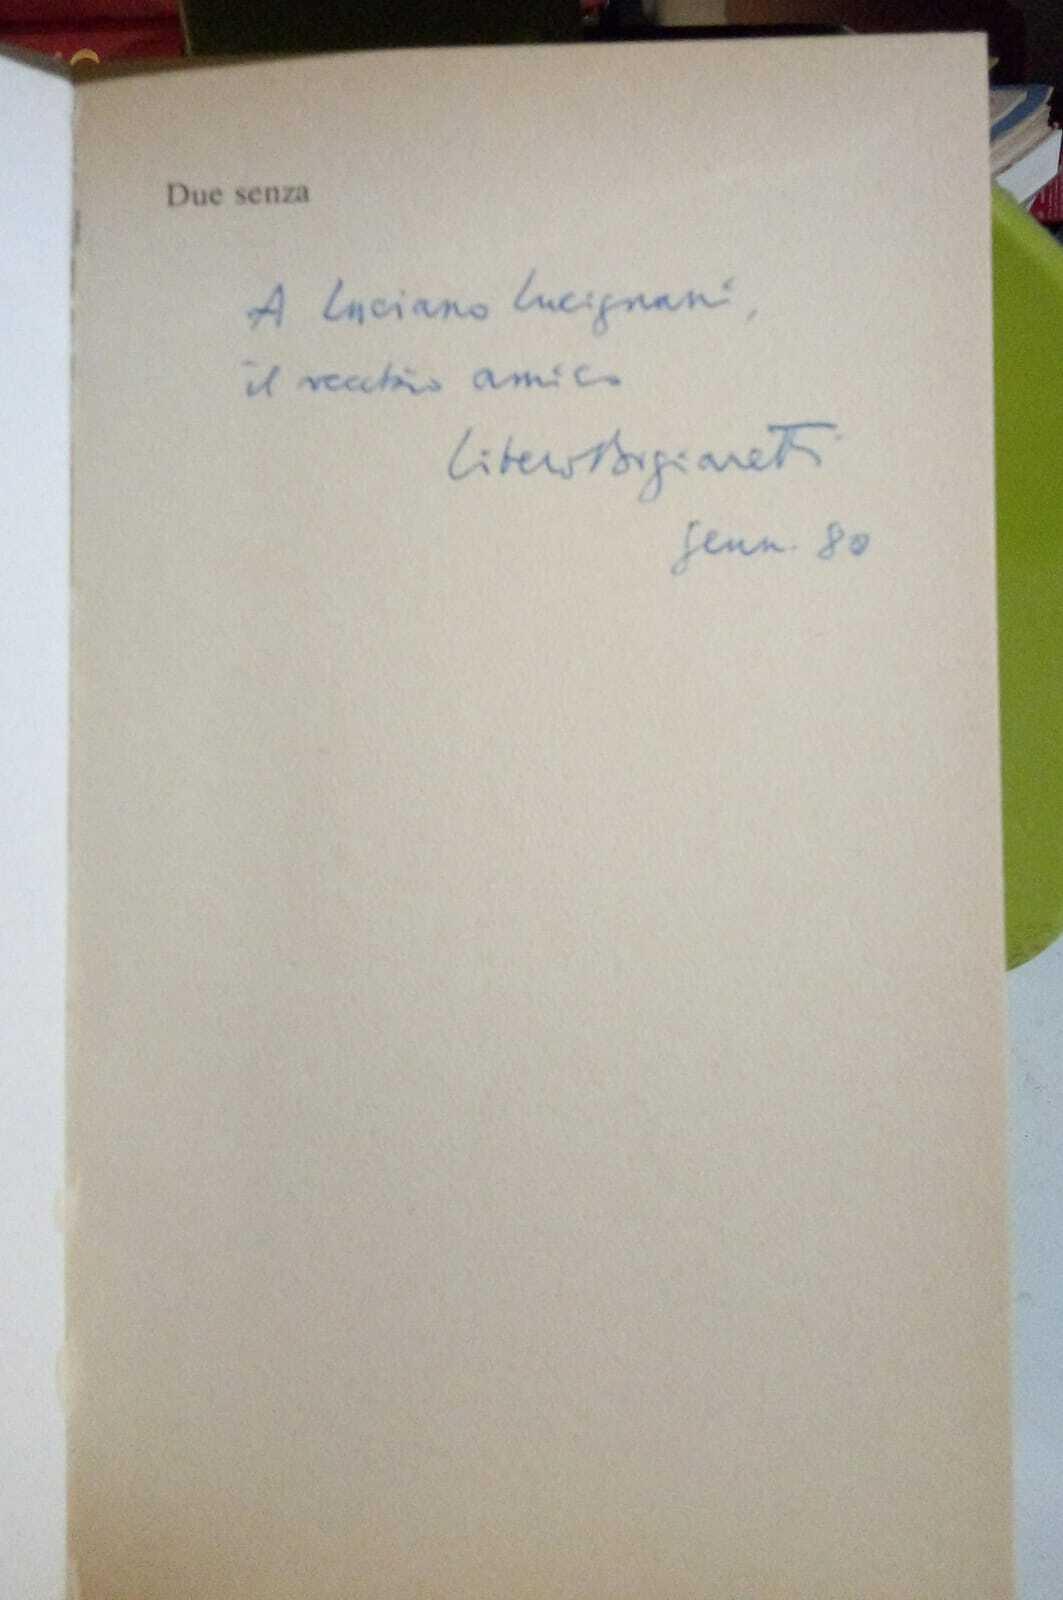 Due senza
A Luciano Lucignani,
il vecchio amico
Libero Bigiaretti
genn. 80